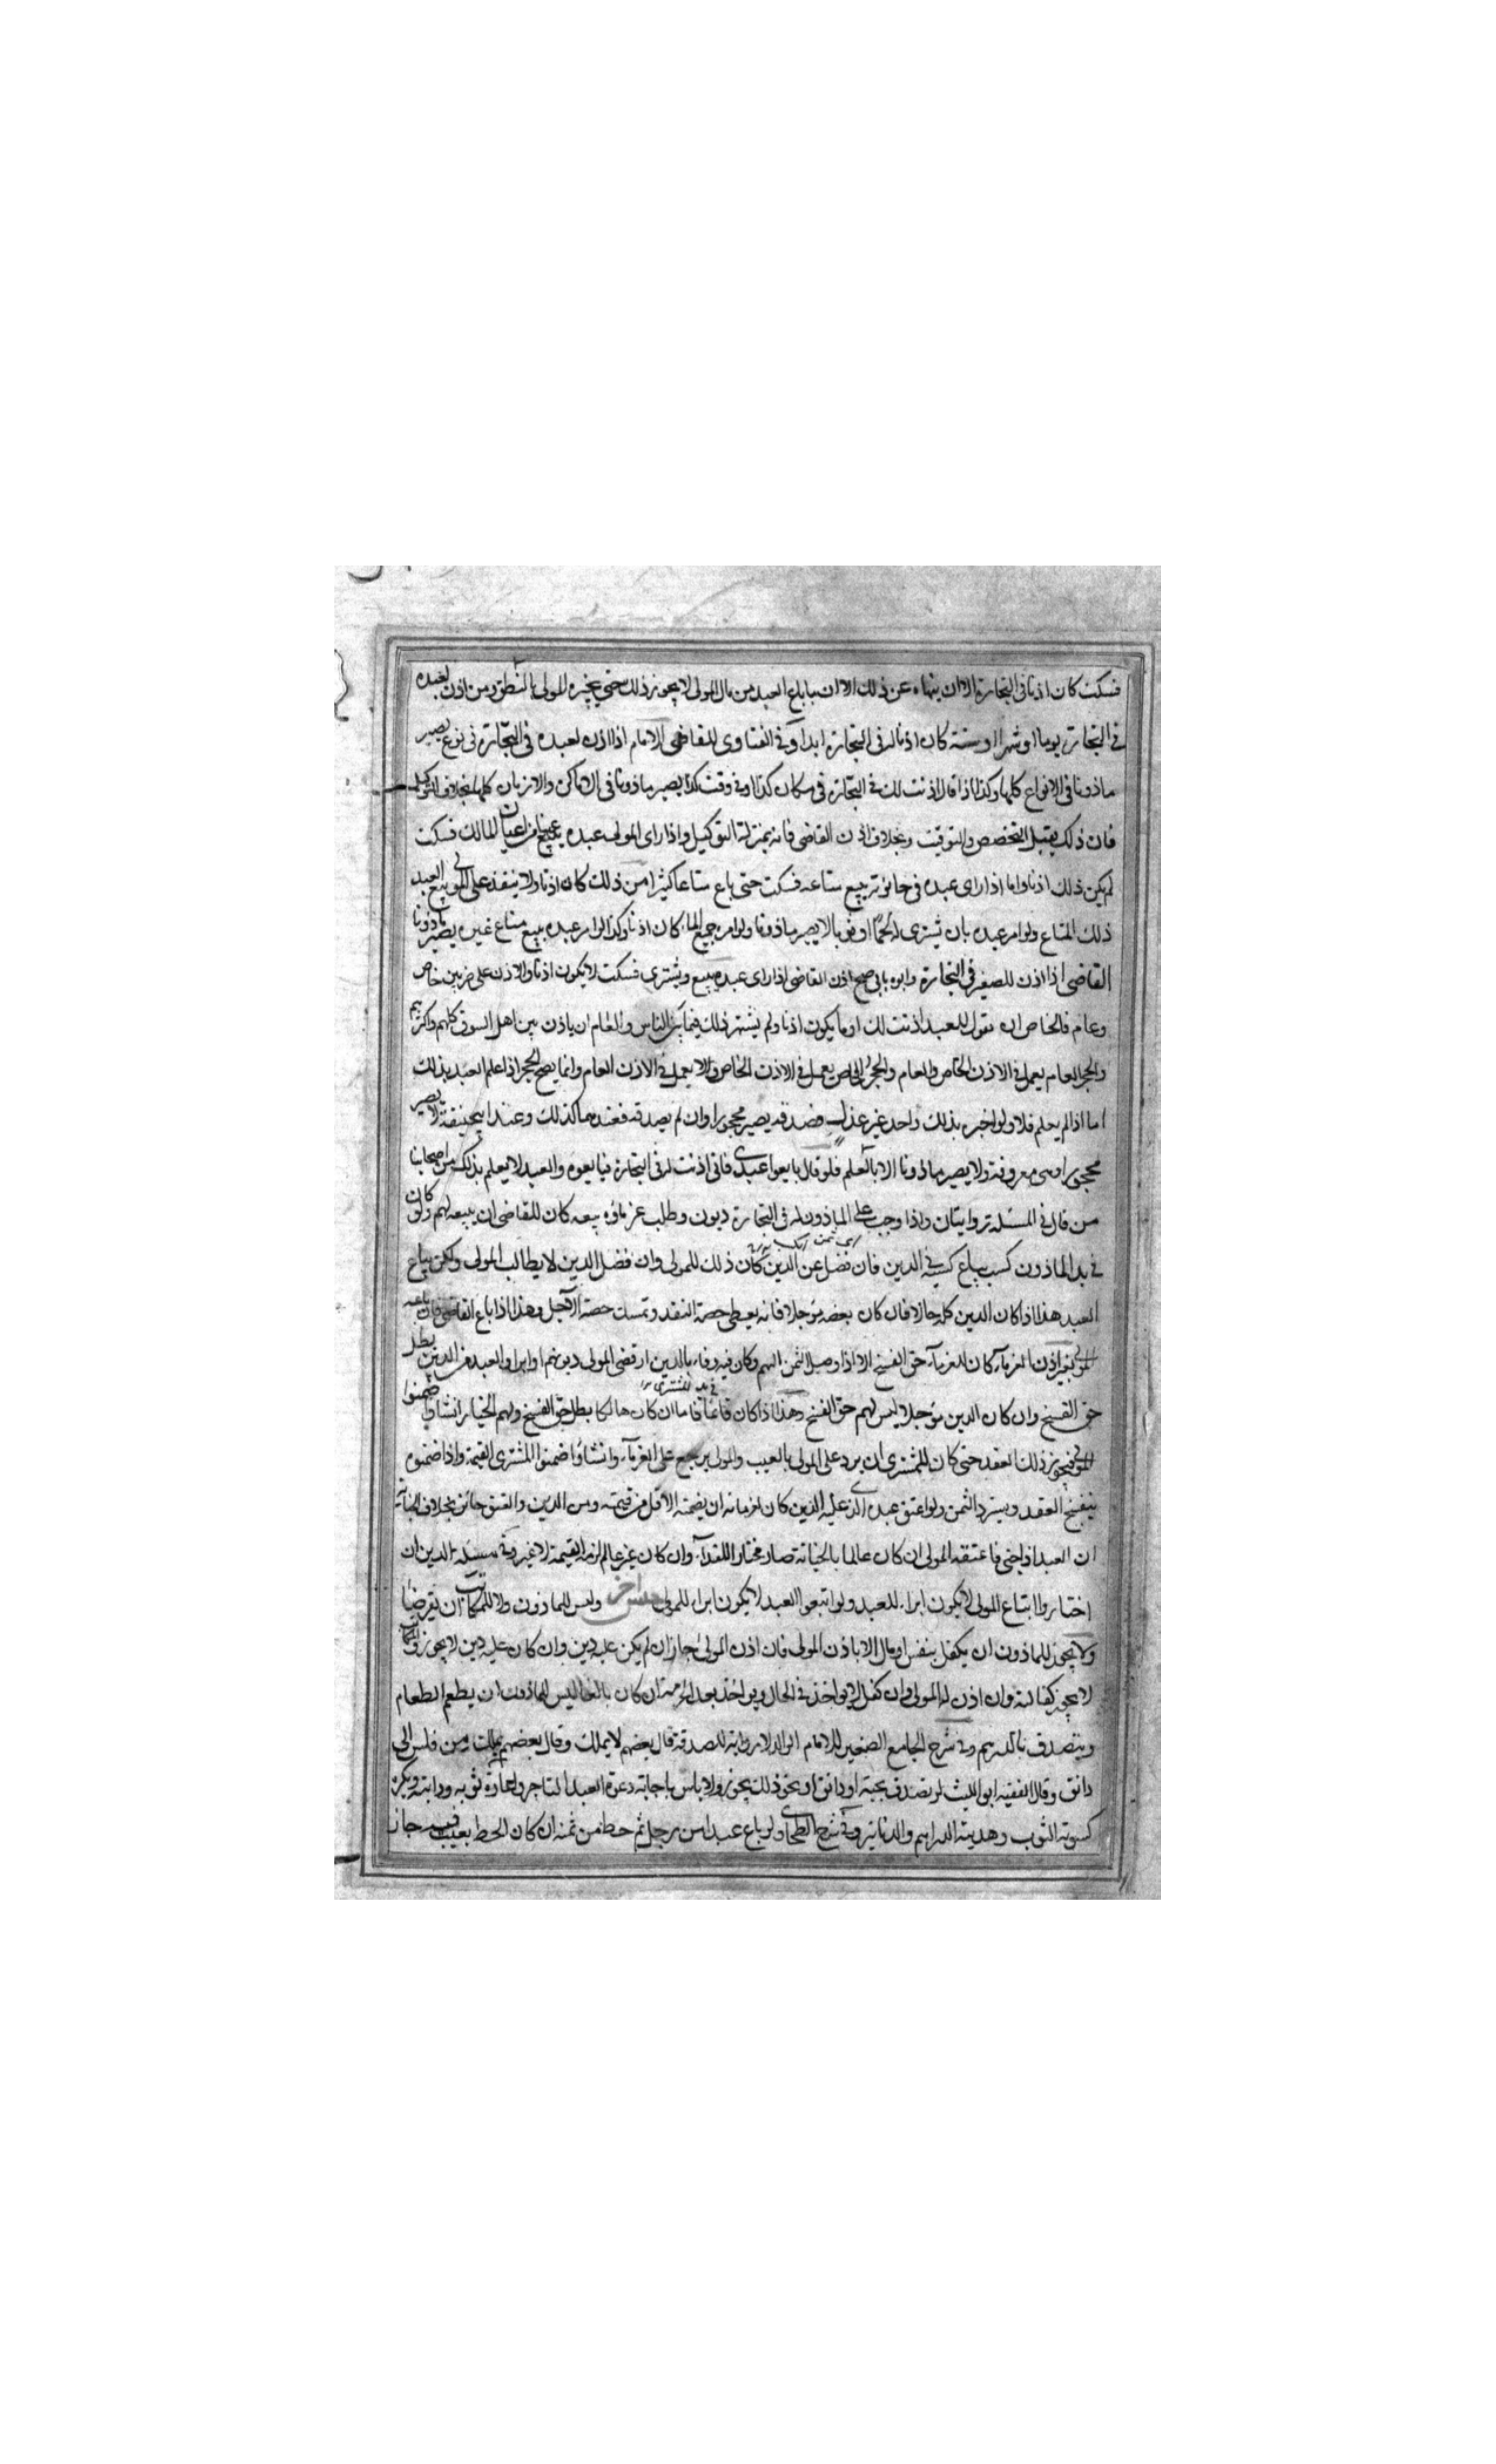 فسكت كان اذنا في التجارة الا ان ينهاه عن ذلك الا ان ما باع العبد من مال المولى لا يجوز ذلك حتى يجيزه المولى بالنطق ومن اذن لعبده
في التجارة يوما او شهرا او سنة كان اذنا له في التجارة ابدا وفي الفتاوى للقاضي الامام اذا اذن لعبده في التجارة في نوع يصير
ماذونا في الانواع كلها وكذا اذا قال اذنت لك في التجارة في مكان كذا او في وقت كذا يصير ماذونا في الاماكن والازمان كلها بخلاف التوكيل
فان ذلك يقبل التخصص والتوقيت وبخلاف اذن القاضي فانه بمنزلة التوكيل واذا راى المولى عبده يبيع عينا من اعيان المالك فسكت
لم يكن ذلك اذنا واما اذا راى عبده في حانوته يبيع متاعه فسكت حتى باع متاعا كثيرا من ذلك كان اذنا ولا ينفذ على المولى بيع العبد
ذلك المتاع ولو امر عبده بان يشتري لحما او ثوبا لا يصير ماذونا ولو امر جميع الماء كان اذنا وكذا لو امر عبده ببيع متاع غيره يصير ماذونا
القاضي اذا اذن للصغير في التجارة وابوه يابى صح اذن القاضي اذا راى عبده يبيع ويشتري فسكت لا يكون اذنا والاذن على ضربين خاص
وعام فالخاص ان يقول للعبد اذنت لك او ما يكون اذنا ولم يشتهر ذلك فيما بين الناس والعام ان ياذن بين اهل السوق كلهم واكثرهم
والحجر العام يعمل في الاذن الخاص والعام والحجر الخاص يعمل في الاذن الخاص ولا يعمل في الاذن العام وانما يصح الحجر اذا علم العبد بذلك
اما اذا لم يعلم فلا ولو اخبره بذلك واحد غير عدل فصدقه يصير محجورا وان لم يصدقه فعندهما كذلك وعند ابي حنيفة لا يصير
محجورا وهي معروفة ولا يصير ماذونا الا بالعلم فلو قال بايعوا عبدي فاني اذنت له في التجارة فبايعوه والعبد لا يعلم بذلك من اصحابنا
من قال في المسئلة روايتان واذا وجب على الماذون له في التجارة ديون وطلب غرماؤه بيعه كان للقاضي ان يبيعه لهم ولو كان
في يد الماذون كسب يباع كسبه في الدين فان فضل عن الدين كان ذلك للمولى وان فضل الدين لا يطالب المولى ولكن يباع
العبد هذا اذا كان الدين كله حالا فان كان بعضه مؤجلا فانه يعطي حصة النقد وتمسك حصة الآجل وهذا اذا باع القاضي فان باعه
المولى بغير اذن الغرماء كان للغرماء حق الفسخ الا اذا وصل الثمن اليهم وكان فيه وفاء بالدين او قضى المولى دينهم او ابراوا العبد من الدين بطل
حق الفسخ وان كان الدين مؤجلا ليس لهم حق الفسخ وهذا اذا كان قائما في يد المشتري فاما ان كان هالكا بطل حق الفسخ ولهم الخيار ان شاؤا ضمنوا
المولى فيجوز ذلك العقد حتى كان للمشتري ان يرد على المولى بالعيب والمولى يرجع على الغرماء وان شاؤا ضمنوا المشتري القيمة واذا ضمنوه
ينفسخ العقد ويسترد الثمن ولو اعتق عبده الذي عليه الدين كان لغرمائه ان يضمنه الاقل من قيمته ومن الدين والعتق جائز بخلاف الجناية
ان العبد اذا جنى فاعتقه المولى ان كان عالما بالجناية صار مختارا للفداء وان كان غير عالم لزمه القيمة لا غير وفي مسئلة الدين ان
اختاروا اتباع المولى لا يكون ابراء للعبد ولو اتبعوا العبد لا يكون ابراء للمولى جنس آخر وليس للماذون ولا للمكاتب ان يقرضا
ولا يجوز للماذون ان يكفل بنفس او مال الا باذن المولى فان اذن المولى جاز ان لم يكن عليه دين وان كان عليه دين لا يجوز والمكاتب
لا يجوز كفالته وان اذن له المولى وان كفل لا يواخذ في الحال ويواخذ بعد الحرية ان كان بالغا ليس للماذون ان يطعم الطعام
ويتصدق بالدرهم وفي شرح الجامع الصغير للامام الوالد لا رواية للصدقة قال بعضهم لا يملك وقال بعضهم يملك ومن فلس الى
دانق وقال الفقيه ابو الليث لو تصدق بحبة او دانق او نحو ذلك يجوز ولا باس باجابة دعوة العبد التاجر واعارة ثوبه ودابته ويكره
كسوته الثوب وهديته الدراهم والدنانير وفي شرح الطحاوي لو باع عبدا من رجل ثم حط من ثمنه ان كان الحط بعيب فيه جاز